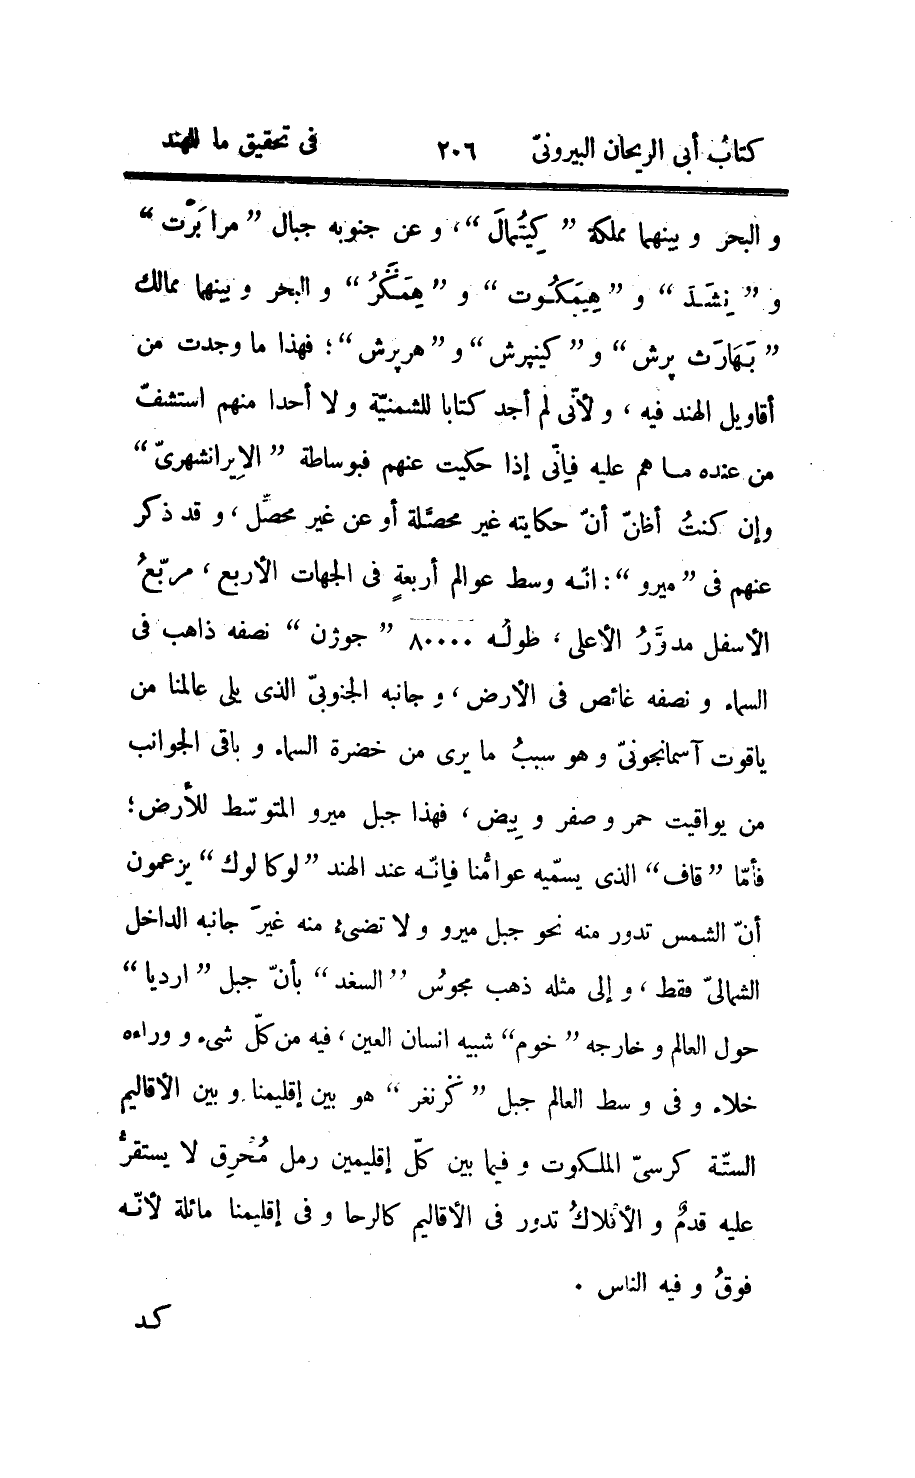 كتابُ أبى الريحان البيرونىّ ٢٠٦ فى تحقيق ما للهند
و البحر و بينهما مملكة ”كِيتُمالَ“، و عن جنوبه جبال ”مرا بَرْت“
و ”نِشَدَ“ و ”هِيمَكُوت“ و ”هِمَگِرُ“ و البحر و بينها ممالك
”بَهارَث بِرش“ و ”كينپرش“ و ”هرپرش“؛ فهذا ما وجدت من
أقاويل الهند فيه، و لأنّى لم أجد كتابا للشمنيّة و لا أحدا منهم استشفّ
من عنده ما هم عليه فإنّى إذا حكيت عنهم فبوساطة ”الإيرانشهرىّ“
وإن كنتُ أظنّ أنّ حكايته غير محصَّلة أو عن غير محصِّل، و قد ذكر
عنهم فى ”ميرو“: انّه وسط عوالم أربعةٍ فى الجهات الأربع، مربّعُ
الأسفل مدوَّرُ الأعلى، طولُه ٨٠٠٠٠ ”جوژن“ نصفه ذاهب فى
السماء و نصفه غائص فى الأرض، و جانبه الجنوبىّ الذى يلى عالمنا من
ياقوت آسمانجونىّ و هو سببُ ما يرى من خضرة السماء و باقى الجوانب
من يواقيت حمر و صفر و بيض، فهذا جبل ميرو المتوسّط للأرض؛
فأمّا ”قاف“ الذى يسمّيه عوامُّنا فإنّه عند الهند ”لوكا لوك“ يزعمون
أنّ الشمس تدور منه نحو جبل ميرو و لا تضىء منه غيرَ جانبه الداخل
الشمالىّ فقط، و إلى مثله ذهب مجوسُ ”السغد“ بأنّ جبل ”ارديا“
حول العالم و خارجه ”خوم“ شبيه انسان العين، فيه من كلّ شىء و وراءه
خلاء و فى وسط العالم جبل ”گرنغر“ هو بين إقليمنا و بين الأقاليم
الستّة كرسىّ الملكوت و فيما بين كلّ إقليمين رمل مُحْرِق لا يستقرُّ
عليه قدمٌ و الأفلاكُ تدور فى الأقاليم كالرحا و فى إقليمنا مائلة لأنّه
فوقُ و فيه الناس .
كد